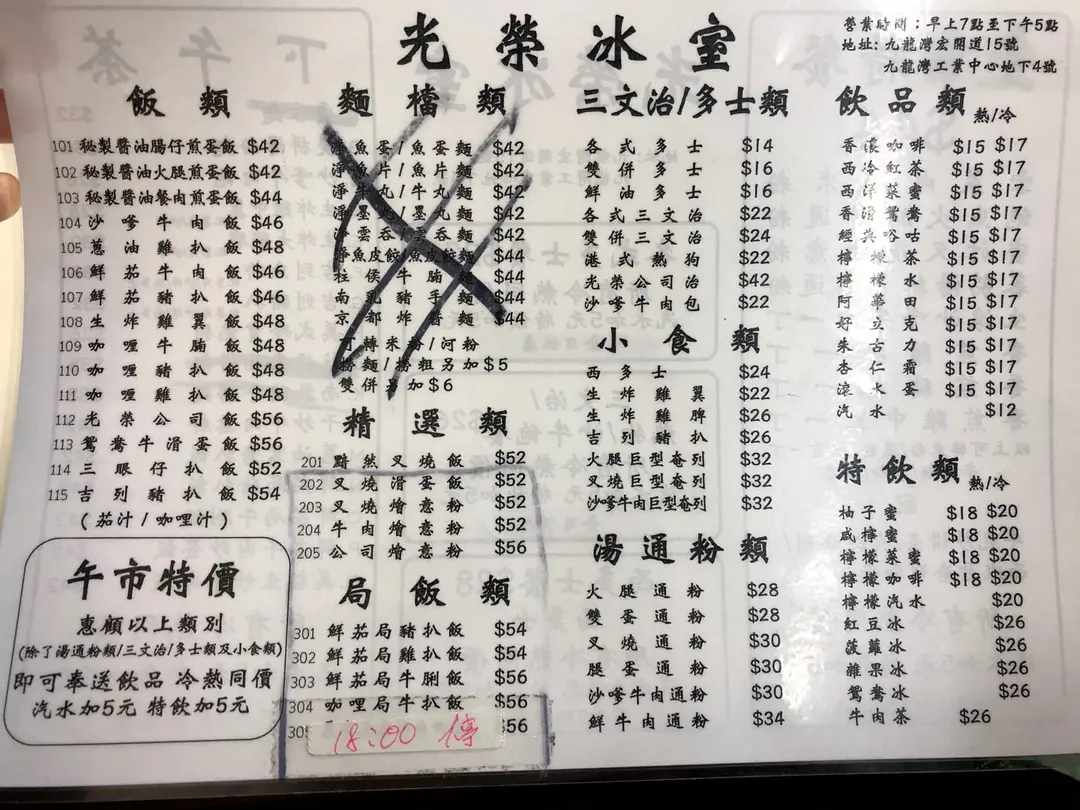 光榮冰室
營業時間：早上7點至下午5點
地址：九龍灣宏開道15號
九龍灣工業中心地下4號
飯類
101 秘製醬油腸仔煎蛋飯 $42
102 秘製醬油火腿煎蛋飯 $42
103 秘製醬油餐肉煎蛋飯 $44
104 沙嗲牛肉飯 $46
105 蔥油雞扒飯 $48
106 鮮茄牛肉飯 $46
107 鮮茄豬扒飯 $46
108 生炸雞翼飯 $48
109 咖喱牛腩飯 $48
110 咖喱豬扒飯 $48
111 咖喱雞扒飯 $48
112 光榮公司飯 $56
113 鴛鴦牛滑蛋飯 $56
114 三眼仔扒飯 $52
115 吉列豬扒飯 $54
(茄汁/咖哩汁)
午市特價
惠顧以上類別
(除了湯通粉類/三文治/多士類及小食類)
即可奉送飲品 冷熱同價
汽水加5元 特飲加5元
麵檔類
淨魚蛋/魚蛋麵 $42
淨魚片/魚片麵 $42
淨牛丸/牛丸麵 $42
淨墨丸/墨丸麵 $42
淨雲吞/雲吞麵 $42
淨魚皮餃/魚皮餃麵 $44
柱侯牛腩麵 $44
南乳豬手麵 $44
京都炸醬麵 $44
可轉米粉/河粉
撈麵/撈粗另加$5
雙併另加$6
精選類
201 黯然叉燒飯 $52
202 叉燒滑蛋飯 $52
203 叉燒燴意粉 $52
204 牛肉燴意粉 $52
205 公司燴意粉 $56
局飯類
301 鮮茄局豬扒飯 $54
302 鮮茄局雞扒飯 $54
303 鮮茄局牛脷飯 $56
304 咖哩局牛扒飯 $56
305 $56
18:00 停
三文治/多士類
各式多士 $14
雙併多士 $16
鮮油多士 $16
各式三文治 $22
雙併三文治 $24
港式熱狗 $22
光榮公司治 $42
沙嗲牛肉包 $22
小食類
西多士 $24
生炸雞翼 $22
生炸雞脾 $26
吉列豬扒 $26
火腿巨型奄列 $32
叉燒巨型奄列 $32
沙嗲牛肉巨型奄列 $32
湯通粉類
火腿通粉 $28
雙蛋通粉 $28
叉燒通粉 $30
腿蛋通粉 $30
沙嗲牛肉通粉 $30
鮮牛肉通粉 $34
飲品類 熱/冷
香濃咖啡 $15 $17
西冷紅茶 $15 $17
西洋菜蜜 $15 $17
香滑鴛鴦 $15 $17
經典哈咕 $15 $17
檸檬茶 $15 $17
檸檬水 $15 $17
阿華田 $15 $17
好立克 $15 $17
朱古力 $15 $17
杏仁霜 $15 $17
滾水蛋 $15 $17
汽水 $12
特飲類 熱/冷
柚子蜜 $18 $20
咸檸蜜 $18 $20
檸檬菜蜜 $18 $20
檸檬咖啡 $18 $20
檸檬汽水 $20
紅豆冰 $26
菠蘿冰 $26
雜果冰 $26
鴛鴦冰 $26
牛肉茶 $26